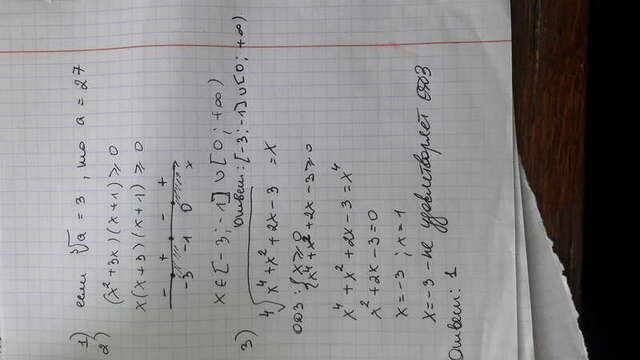 1) если ∛a = 3 , то a = 27
2)
(x² + 3x)(x + 1) ≥ 0
x(x + 3)(x + 1) ≥ 0
- + - +
-3 -1 0 x
x ∈ [-3; -1] ∪ [0; +∞)
Ответ: [-3; -1] ∪ [0; +∞)
3)
∜(x⁴ + x² + 2x - 3) = x
ОДЗ: { x ≥ 0
{ x⁴ + x² + 2x - 3 ≥ 0
x⁴ + x² + 2x - 3 = x⁴
x² + 2x - 3 = 0
x = -3 ; x = 1
x = -3 - не удовлетворяет ОДЗ
Ответ: 1